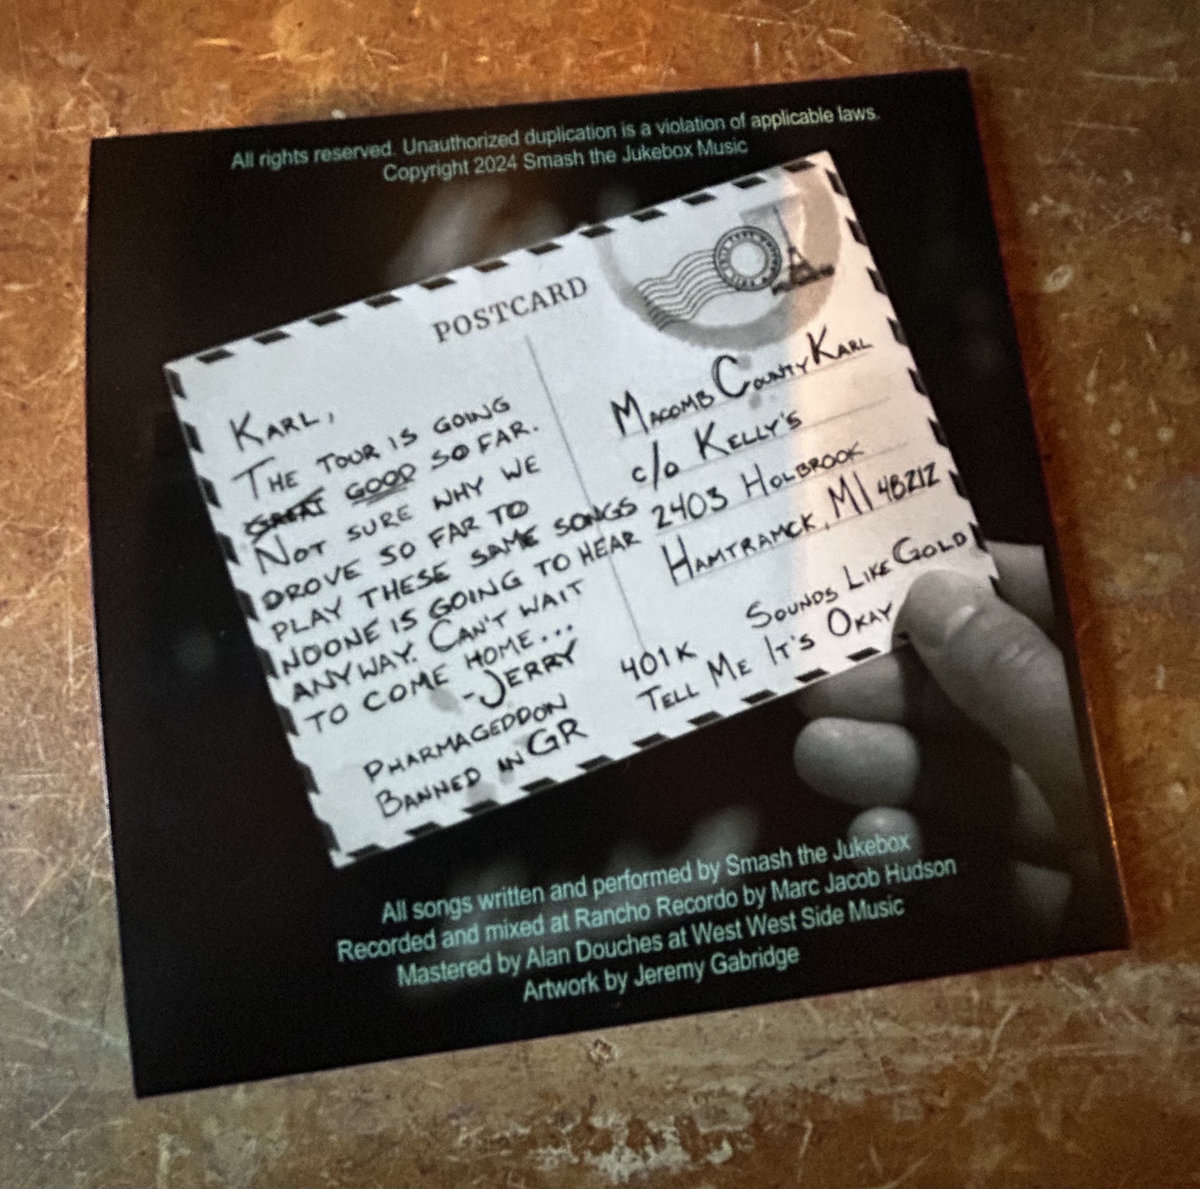 All rights reserved. Unauthorized duplication is a violation of applicable laws.
Copyright 2024 Smash the Jukebox Music
POSTCARD
KARL,
THE TOUR IS GOING
GREAT GOOD SO FAR.
NOT SURE WHY WE
DROVE SO FAR TO
PLAY THESE SAME SONGS
NOONE IS GOING TO HEAR
ANYWAY. CAN'T WAIT
TO COME HOME...
-JERRY
PHARMAGEDDON
BANNED IN GR
MACOMB COUNTY KARL
c/o KELLY'S
2403 HOLBROOK
HAMTRAMCK, MI 48212
SOUNDS LIKE GOLD
401K
TELL ME IT'S OKAY
All songs written and performed by Smash the Jukebox
Recorded and mixed at Rancho Recordo by Marc Jacob Hudson
Mastered by Alan Douches at West West Side Music
Artwork by Jeremy Gabridge